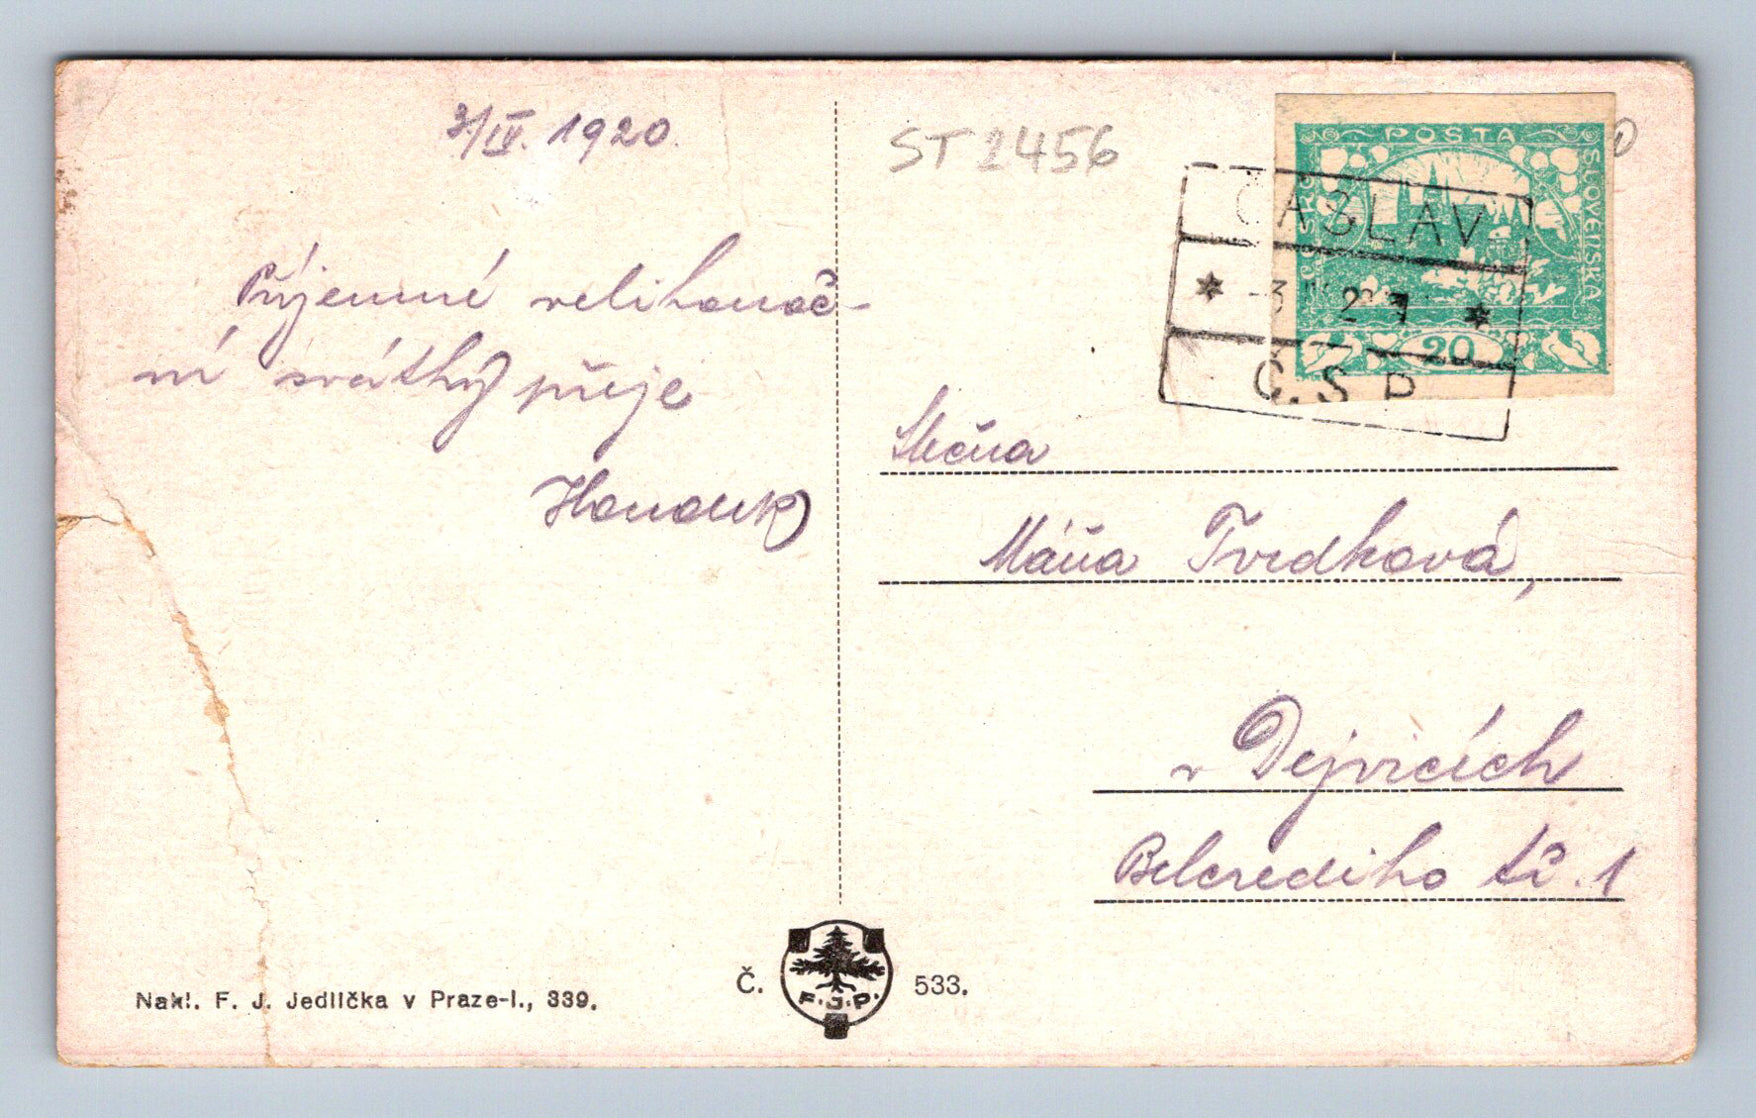 3/IV. 1920.
ST 2456
POSTA
ČESKO
SLOVENSKA
20
ČASLAV
-3 2
Č.S P
Příjemné velikonoč-
ní svátky přeje
Slečna
Máňa Tvrdková,
v Dejvicích
Belcrediho tř. 1
Nakl. F. J. Jedlička v Praze-I., 339.
Č. 533.
F.J.P.